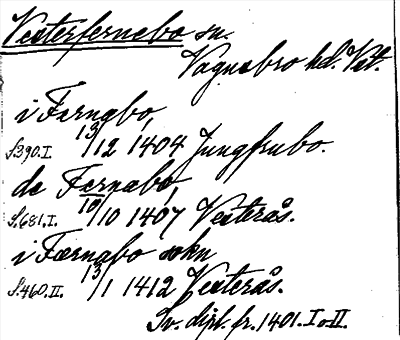 Vesterfernebo sn.
Vagnsbro hd. Vst.
i Fernabo,
S.390.I. 13/12 1404 Jungfrubo.
de Fernabo,
S.681.I. 10/10 1407 Vesterås.
i Færnabo sokn
S.460.II. 13/1 1412 Vesterås.
Sv. dipl. fr. 1401. I o II.